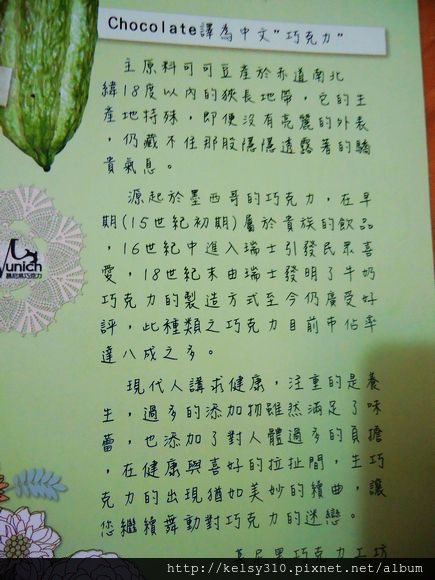 Chocolate譯為中文"巧克力"
主原料可可豆產於赤道南北
緯18度以內的狹長地帶，它的生
產地特殊，即便沒有亮麗的外表
，仍藏不住那股隱隱透露著的驕
貴氣息。
源起於墨西哥的巧克力，在早
期(15世紀初期)屬於貴族的飲品
，16世紀中進入瑞士引發民眾喜
愛，18世紀末由瑞士發明了牛奶
巧克力的製造方式至今仍廣受好
評，此種類之巧克力目前市佔率
達八成之多。
現代人講求健康，注重的是養
生，過多的添加物雖然滿足了味
蕾，也添加了對人體過多的負擔
，在健康與喜好的拉扯間，生巧
克力的出現猶如美妙的續曲，讓
您繼續舞動對巧克力的迷戀。
unich
慕尼黑巧克力
慕尼黑巧克力工坊
http://kelsy310.pixnet.net/album